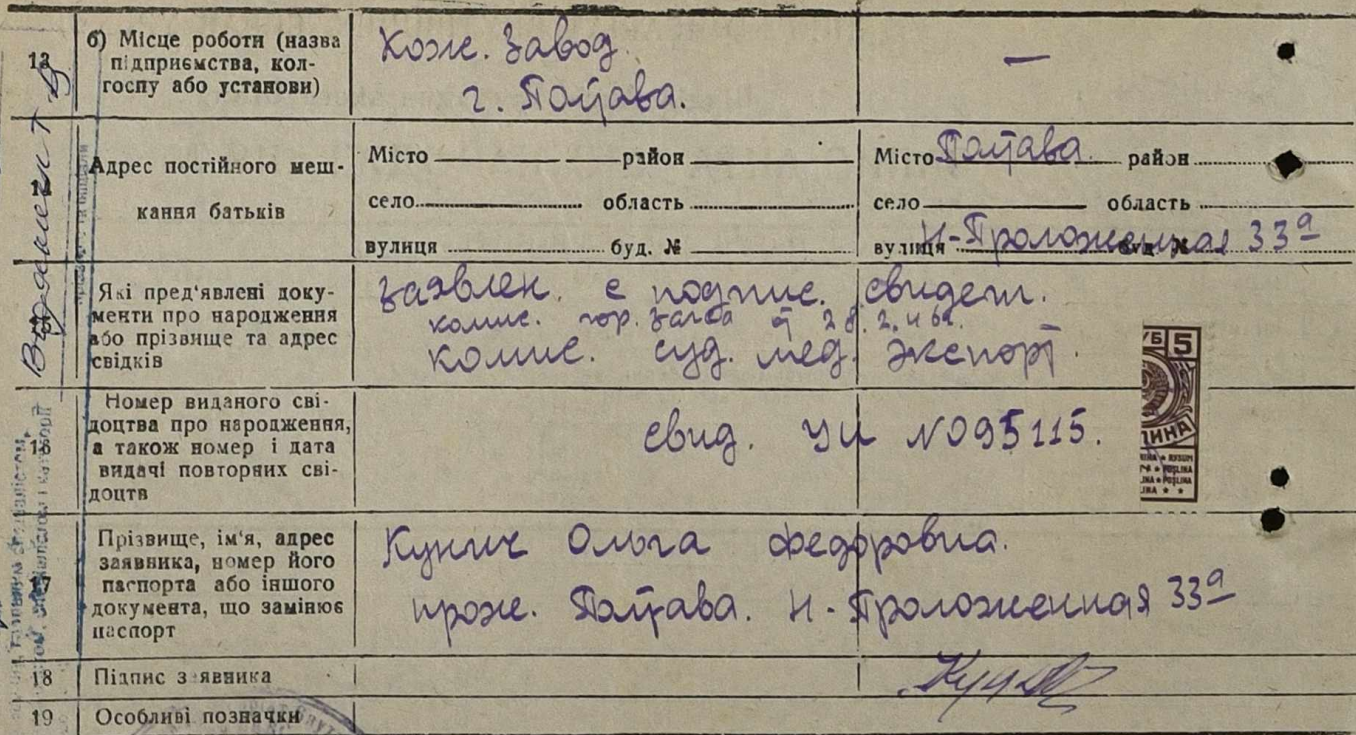 13 б) Місце роботи (назва
підприємства, кол-
госпу або установи)
Кож. Завод.
г. Полтава.
—
Адрес постійного меш-
кання батьків
Місто район
село область
вулиця буд. №
Місто Полтава район
село область
вулиця Н-Проложенная 33а буд. №
Які пред'явлені доку-
менти про народження
або прізвище та адрес
свідків
заявлен. с подпис. свидет.
комис. гор. загса от 28.2.46г.
комис. суд. мед. экспорт.
16 Номер виданого сві-
доцтва про народження,
а також номер і дата
видачі повторних сві-
доцтв
свид. УИ №095115.
5
17 Прізвище, ім'я, адрес
заявника, номер його
паспорта або іншого
документа, що замінює
паспорт
Кунич Ольга Федоровна.
прож. Полтава. Н-Проложенная 33а
18 Підпис заявника
19 Особливі позначки